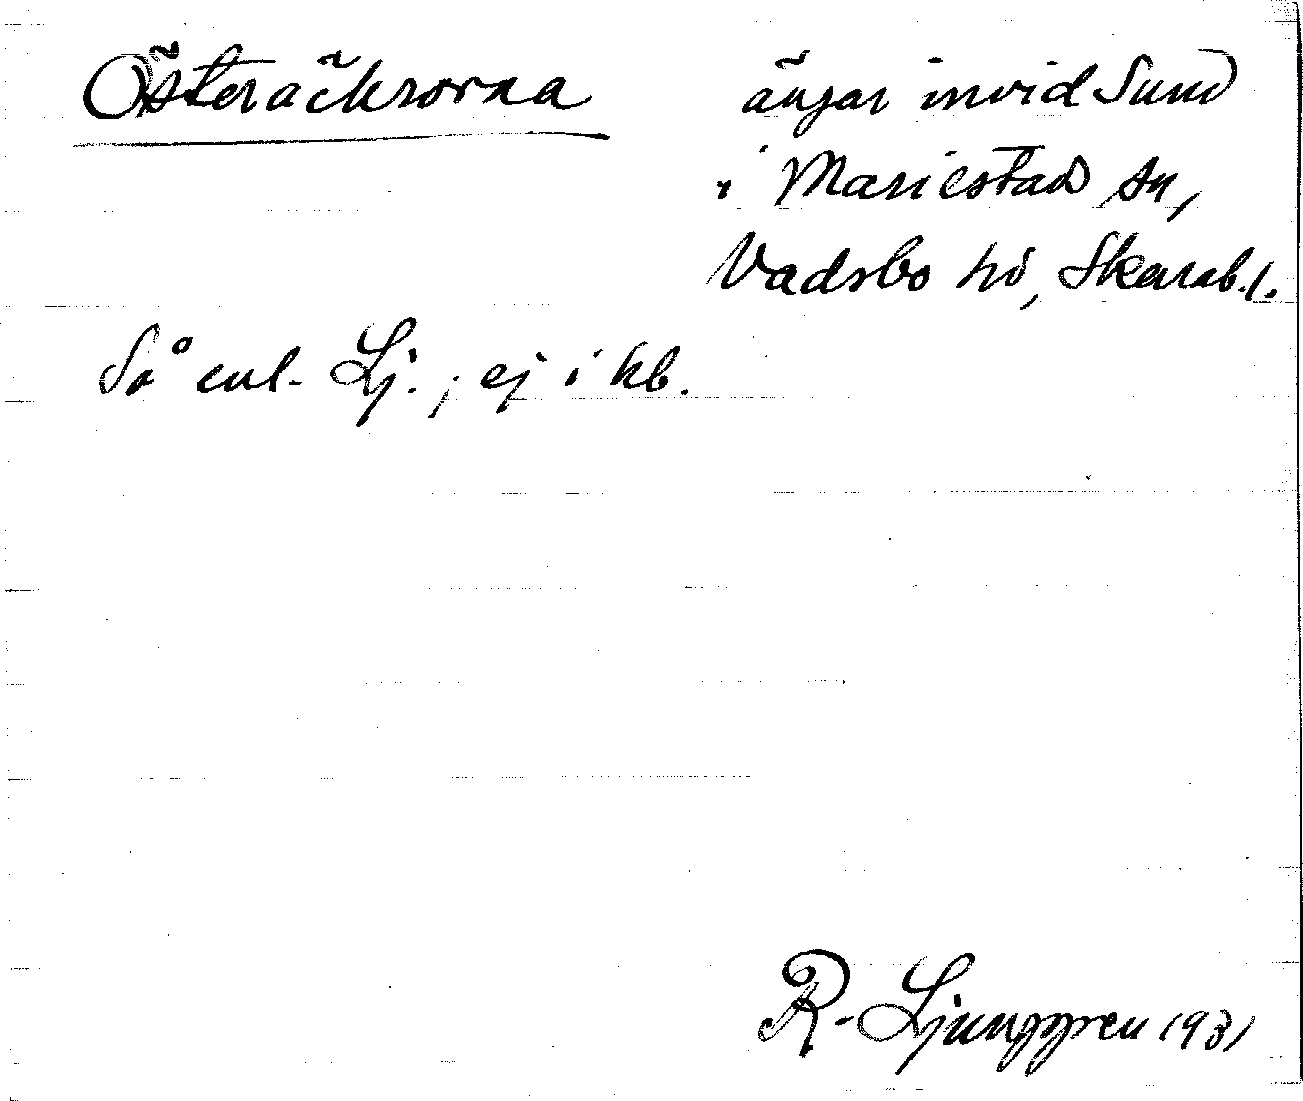 Österäckrorna
ängar invid Sund
i Mariestad sn,
Vadsbo hd, Skarab. l.
Så enl. Lj., ej i kb.
R. Ljunggren 1931